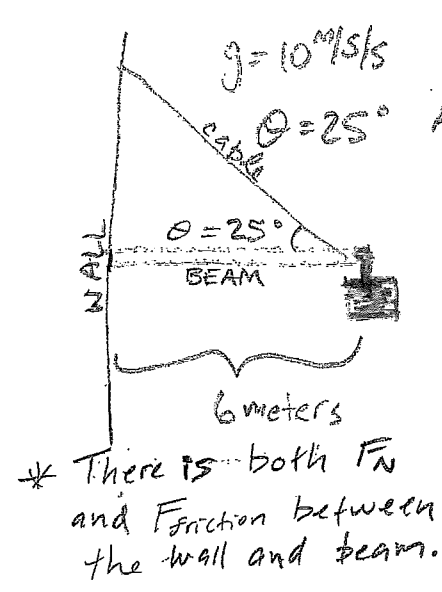 g = 10 m/s/s
θ = 25°
cable
θ = 25°
WALL
BEAM
6 meters
* There is both FN
and Ffriction between
the wall and beam.